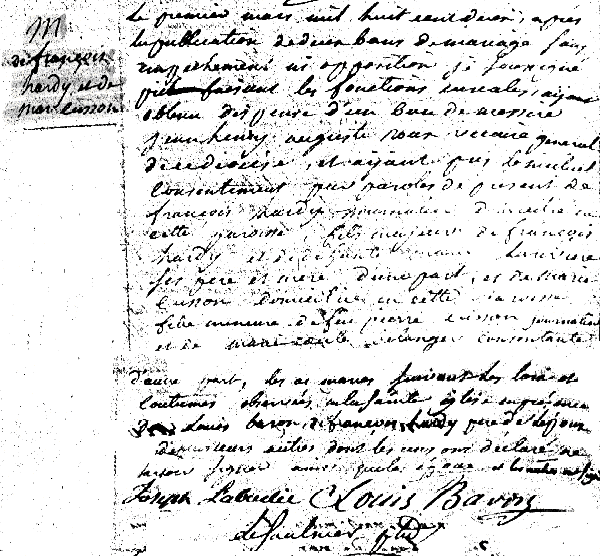 M
de françois
hardy et de
marie cusson
Le premier mars mil huit cent deux, après
la publication de deux bans de mariage sans
empechement ni opposition je soussigné
prêtre faisant les fonctions curiales, ayant
obtenu dispense d'un ban de messire
jean henry auguste roux vicaire general
de ce diocèse, et ayant pris le mutuel
consentement par paroles de present de
françois hardy journalier domicilié en
cette paroisse, fils majeur de françois
hardy et de défunte marie
ses père et mère d'une part, et de marie
cusson domiciliée en cette paroisse
fille mineure de feu pierre cusson journalier
et de marie consentante
d'autre part, les ai mariés suivant les loix et
coutumes observées en la sainte église en présence
de Louis baron, de françois hardy père de l'époux
de plusieurs autres dont les uns ont déclaré ne
savoir signer ainsi que
Joseph Labadie Louis Baron